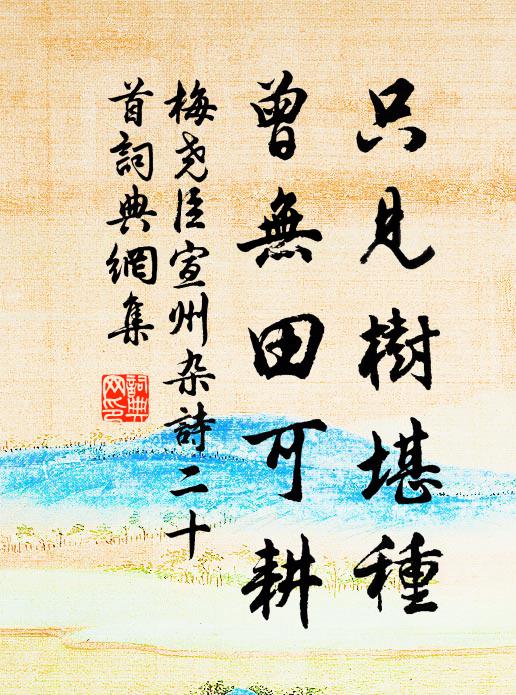 只见樹堪種
曾無田可耕
梅尧臣宣州杂詩二十
首詞典網集
詞典网印